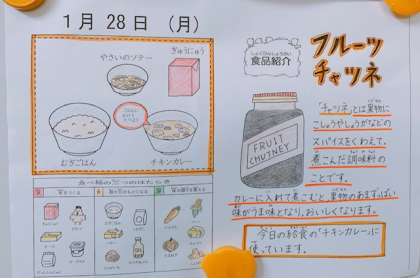 1月28日(月)
ぎゅうにゅう
やさいのソテー
むぎごはん
チキンカレー
食品紹介
フルーツ
チャツネ
FRUIT
CHUTNEY
「チャツネ」とは果物に
こしょうやしょうがなどの
スパイスをくわえて、
煮こんだ調味料の
ことです。
カレーに入れて煮こむと、果物のあまずっぱい
味がうま味となり、おいしくなります。
今日の給食の「チキンカレー」に
使っています。